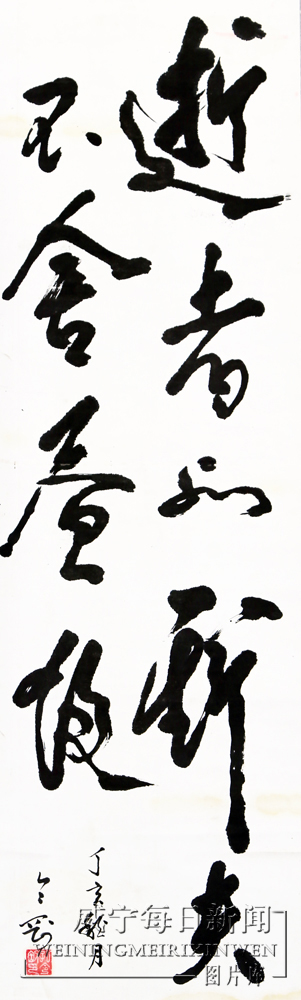 逝者如斯夫
不舍昼夜
丁亥龙月
咸宁每日新闻
WEININGMEIRIXINWEN
图片库